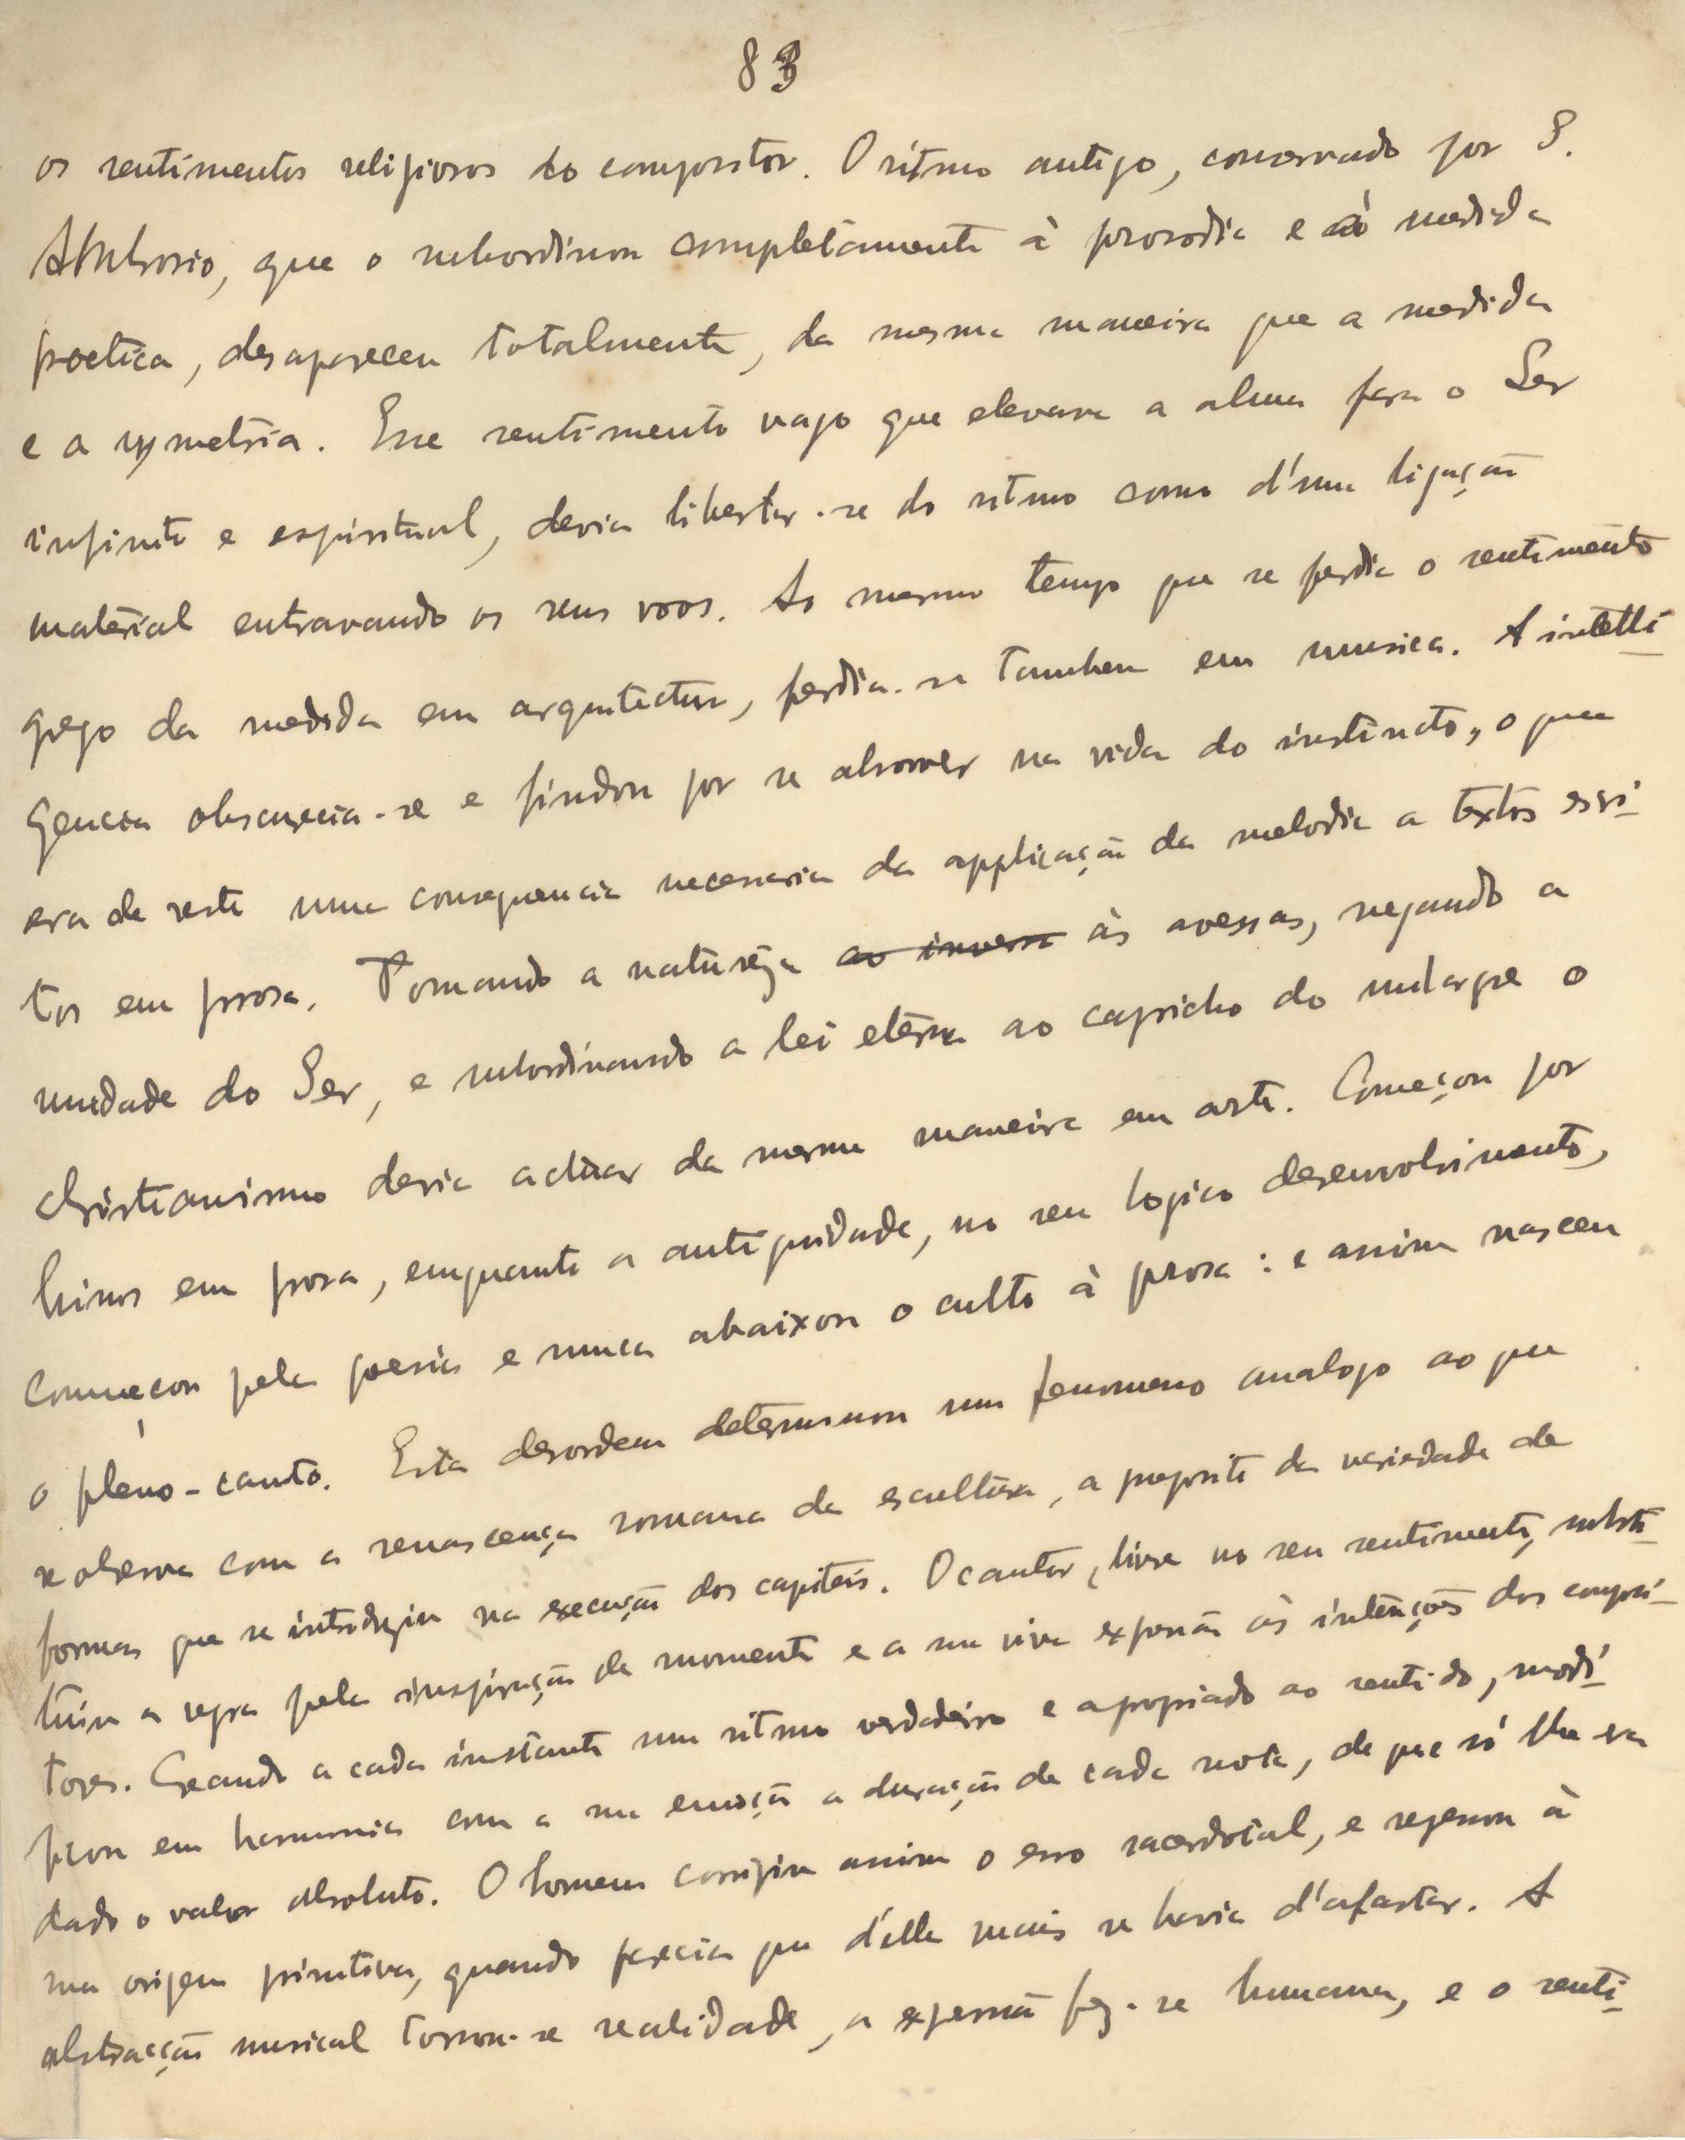 83
os sentimentos religiosos do compositor. O ritmo antigo, conservado por S.
Ambrosio, que o subordinou completamente à prosodia e à medida
poetica, desapareceu totalmente, da mesma maneira que a medida
e a symetria. Esse sentimento vago que elevava a alma para o Ser
infinito e espiritual, devia libertar-se do ritmo como d'uma ligação
material entravando os seus voos. Ao mesmo tempo que se perdia o sentimento
grego da medida em arquitectura, perdia-se tambem em musica. A intelli-
gencia obscurecia-se e findou por se absorver na vida do instincto, o que
era de resto uma consequencia necessaria da applicação da melodia a textos escri-
tos em prosa. Tomando a natureza ao inverso às avessas, negando a
unidade do Ser, e subordinando a lei eterna ao capricho do milagre o
christianismo devia actuar da mesma maneira em arte. Começou por
hinos em prosa, emquanto a antiguidade, no seu logico desenvolvimento,
começou pela poesia e nunca abaixou o culto à prosa: e assim nasceu
o pleno-canto. Esta desordem determinou um fenomeno analogo ao que
se observa com a renascença romana da escultura, a proposito da variedade de
formas que se introduziu na execução dos capiteis. O cantor, livre no seu sentimento, substi-
tuiu a regra pela inspiração do momento e a sua viva expansão às intenções dos composi-
tores. Creando a cada instante um ritmo verdadeiro e apropriado ao sentido, modi-
ficou em harmonia com a sua emoção a duração de cada nota, de que só lhe era
dado o valor absoluto. O homem corrigiu assim o erro sacerdotal, e regressou à
sua origem primitiva, quando parecia que d'ella mais se havia d'afastar. A
abstracção musical tornou-se realidade, a expressão fez-se humana, e o senti-